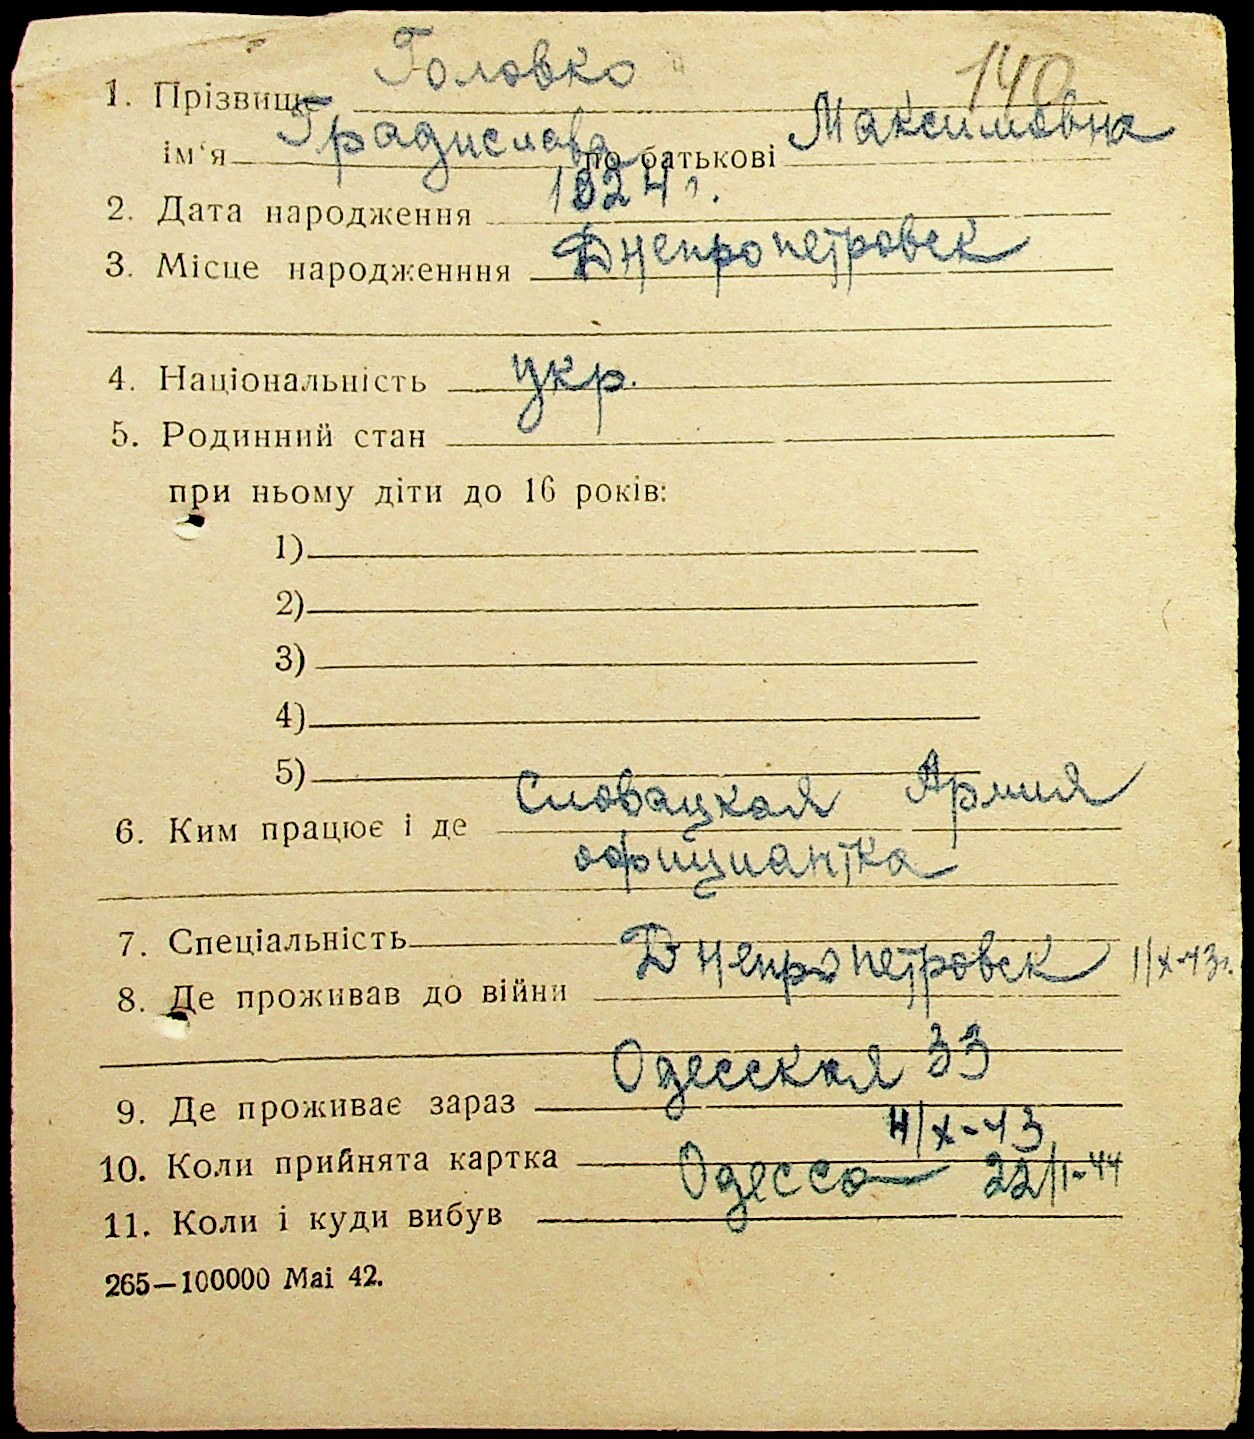 140
1. Прізвище Головко
ім‘я Градислава по батькові Максимовна
2. Дата народження 1924 г.
3. Місце народженння Днепропетровск
4. Національність укр.
5. Родинний стан
при ньому діти до 16 років:
1)
2)
3)
4)
5)
6. Ким працює і де Словацкая Армия
официантка
7. Спеціальність
8. Де проживав до війни Днепропетровск 1/X-43г.
9. Де проживає зараз Одесская 33
10. Коли прийнята картка 4/X-43
11. Коли і куди вибув Одесса 22/I-44
265—100000 Mai 42.